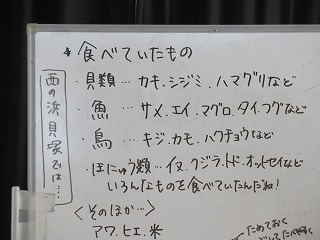 * 食べていたもの
西の浜貝塚では…
・貝類… カキ、シジミ、ハマグリなど
・魚 … サメ、エイ、マグロ、タイ、フグなど
・鳥 … キジ、カモ、ハクチョウなど
・ほにゅう類… イヌ、クジラ、トド、オットセイなど
いろんなものを食べていたんだね!
<そのほか…>
アワ、ヒエ、米
ためておく